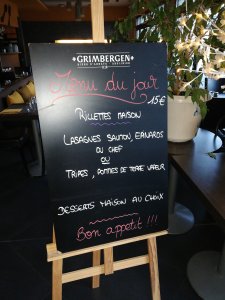 GRIMBERGEN
Menu du jour
15€
RILLETTES MAISON
LASAGNES SAUMON, EPINARDS
DU CHEF
OU
TRIPES, POMMES DE TERRE VAPEUR
DESSERTS MAISON AU CHOIX
Bon appetit !!!